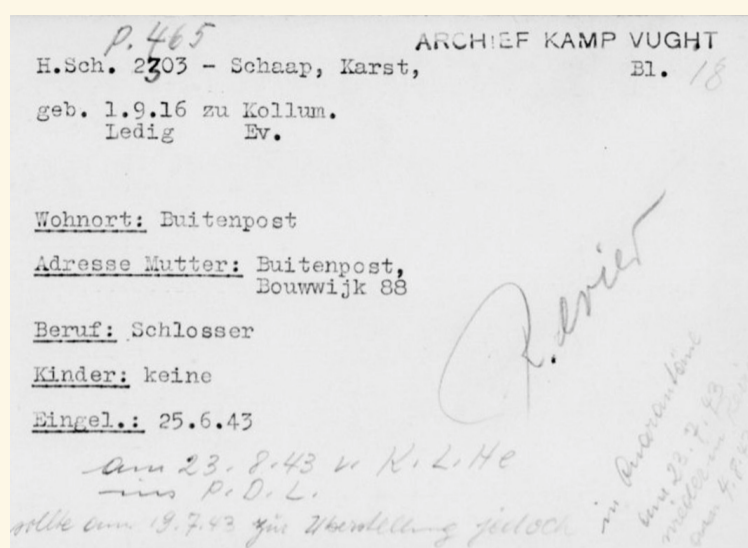 P. 465
ARCHIEF KAMP VUGHT
H.Sch. 2303 - Schaap, Karst,
Bl. 18
geb. 1.9.16 zu Kollum.
Ledig Ev.
Wohnort: Buitenpost
Adresse Mutter: Buitenpost,
Bouwwijk 88
Beruf: Schlosser
Kinder: keine
Eingel.: 25.6.43
Revier
am 23.8.43 v. K.L.He
ins P.D.L.
sollte am 19.7.43 zur Überstellung jedoch
in Quarantäne
am 23.7.43
am 4.8.